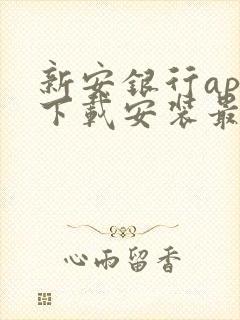 新安银行ap
下载安装最
心雨留香